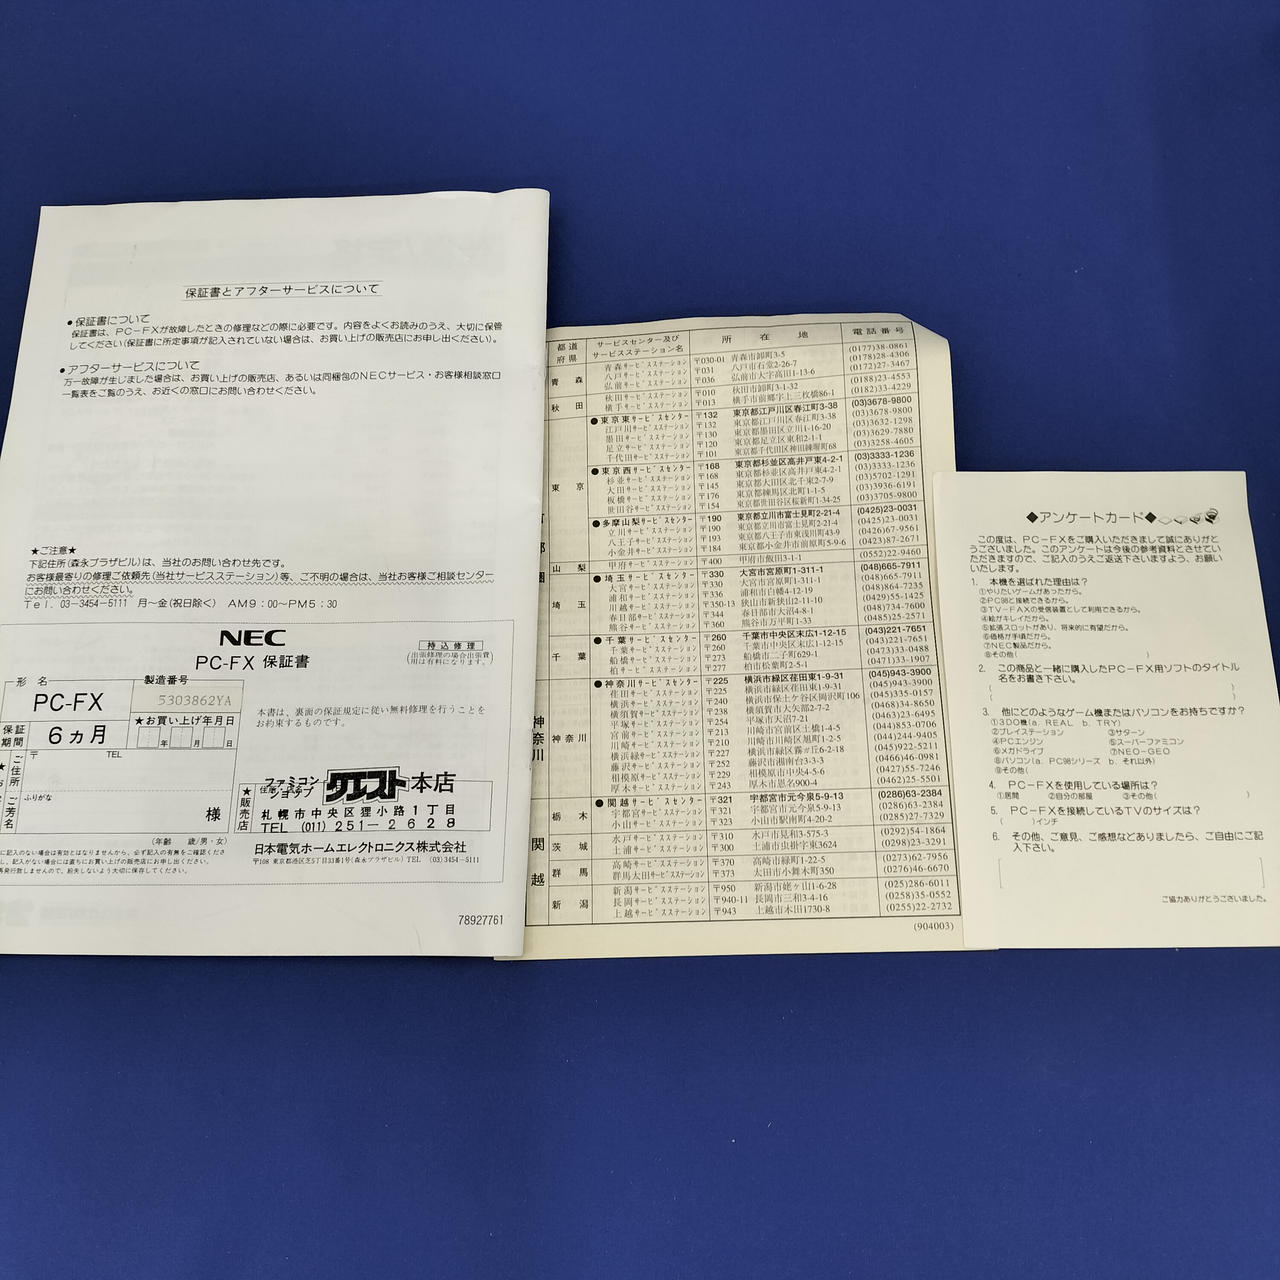 保証書とアフターサービスについて
●保証書について
保証書は、PC-FXが故障したときの修理などの際に必要です。内容をよくお読みのうえ、大切に保管
してください(保証書に所定事項が記入されていない場合は、お買い上げの販売店にお申し出ください)。
●アフターサービスについて
万一故障が生じました場合は、お買い上げの販売店、あるいは同梱包のNECサービス・お客様相談窓口
一覧表をご覧のうえ、お近くの窓口にお問い合わせください。
★ご注意★
下記住所(森永プラザビル)は、当社のお問い合わせ先です。
お客様最寄りの修理ご依頼先(当社サービスステーション)等、ご不明の場合は、当社お客様ご相談センター
にお問い合わせください。
Tel. 03-3454-5111 月~金(祝日除く) AM9:00~PM5:30
NEC
持込修理
PC-FX 保証書
(出張修理の場合出張費
用は有料になります。)
形名
製造番号
PC-FX
5303862YA
★お買い上げ年月日
本書は、裏面の保証規定に従い無料修理を行うことを
お約束するものです。
保証
期間
6ヵ月
年 月 日
〒 TEL
ご住所
ふりがな
ご芳名
様
(年齢 歳/男・女)
★販売店
ファミコン
ショップ
クエスト本店
札幌市中央区狸小路1丁目
TEL (011) 251-2628
日本電気ホームエレクトロニクス株式会社
〒108 東京都港区芝5丁目33番1号(森永プラザビル) TEL (03)3454-5111
78927761
都道府県 サービスセンター及びサービスステーション名 所在地 電話番号
青森 青森サービスステーション 〒030-01 青森市卸町3-5 (0177)38-0861
八戸サービスステーション 〒031 八戸市石堂2-26-7 (0178)28-4306
弘前サービスステーション 〒036 弘前市大字高田1-13-6 (0172)27-3467
秋田 秋田サービスステーション 〒010 秋田市卸町3-1-32 (0188)23-4553
横手サービスステーション 〒013 横手市前郷字上三枚橋86-1 (0182)33-4229
東京 ●東京東サービスセンター 〒132 東京都江戸川区春江町3-38 (03)3678-9800
江戸川サービスステーション 〒132 東京都江戸川区春江町3-38 (03)3678-9800
墨田サービスステーション 〒130 東京都墨田区立川1-16-20 (03)3632-1298
足立サービスステーション 〒120 東京都足立区東和2-1-1 (03)3629-7880
千代田サービスステーション 〒101 東京都千代田区神田練塀町68 (03)3258-4605
●東京西サービスセンター 〒168 東京都杉並区高井戸東4-2-1 (03)3333-1236
杉並サービスステーション 〒168 東京都杉並区高井戸東4-2-1 (03)3333-1236
大田サービスステーション 〒145 東京都大田区北千束2-7-9 (03)5702-1291
板橋サービスステーション 〒176 東京都練馬区北町1-1-5 (03)3936-6191
世田谷サービスステーション 〒154 東京都世田谷区桜新町1-34-25 (03)3705-9800
●多摩山梨サービスセンター 〒190 東京都立川市富士見町2-21-4 (0425)23-0031
立川サービスステーション 〒190 東京都立川市富士見町2-21-4 (0425)23-0031
八王子サービスステーション 〒193 東京都八王子市東浅川町43-9 (0426)67-9561
小金井サービスステーション 〒184 東京都小金井市前原町5-9-6 (0423)87-2671
山梨 甲府サービスステーション 〒400 甲府市飯田3-1-1 (0552)22-9460
埼玉 ●埼玉サービスセンター 〒330 大宮市宮原町1-311-1 (048)665-7911
大宮サービスステーション 〒330 大宮市宮原町1-311-1 (048)665-7911
浦和サービスステーション 〒336 浦和市白幡4-12-19 (048)864-7235
川越サービスステーション 〒350-13 狭山市新狭山2-11-10 (0429)55-1425
春日部サービスステーション 〒344 春日部市大沼4-8-1 (048)734-7600
熊谷サービスステーション 〒360 熊谷市万平町1-33 (0485)25-2571
千葉 ●千葉サービスセンター 〒260 千葉市中央区末広1-12-15 (043)221-7651
千葉サービスステーション 〒260 千葉市中央区末広1-12-15 (043)221-7651
船橋サービスステーション 〒273 船橋市二子町629-1 (0473)33-0488
柏サービスステーション 〒277 柏市松葉町2-5-1 (0471)33-1907
神奈川 ●神奈川サービスセンター 〒225 横浜市緑区荏田東1-9-31 (045)943-3900
荏田サービスステーション 〒225 横浜市緑区荏田東1-9-31 (045)943-3900
横浜サービスステーション 〒240 横浜市保土ケ谷区岡沢町106 (045)335-0157
横須賀サービスステーション 〒238 横須賀市大矢部2-7-2 (0468)34-8650
平塚サービスステーション 〒254 平塚市天沼7-21 (0463)23-6495
宮前サービスステーション 〒213 川崎市宮前区土橋1-4-1 (044)853-0706
川崎サービスステーション 〒210 川崎市川崎区旭町1-2-5 (044)244-9405
横浜緑サービスステーション 〒227 横浜市緑区霧ヶ丘6-2-18 (045)922-5211
藤沢サービスステーション 〒252 藤沢市湘南台3-3-3 (0466)46-0981
相模原サービスステーション 〒229 相模原市中央4-5-6 (0427)55-7246
厚木サービスステーション 〒243 厚木市恩名900-4 (0462)25-5501
栃木 ●関越サービスセンター 〒321 宇都宮市元今泉5-9-13 (0286)63-2384
宇都宮サービスステーション 〒321 宇都宮市元今泉5-9-13 (0286)63-2384
小山サービスステーション 〒323 小山市駅南町4-20-2 (0285)27-7329
茨城 水戸サービスステーション 〒310 水戸市見和3-575-3 (0292)54-1864
土浦サービスステーション 〒300 土浦市虫掛字東3624 (0298)23-3291
群馬 高崎サービスステーション 〒370 高崎市緑町1-22-5 (0273)62-7956
群馬太田サービスステーション 〒373 太田市小舞木町350 (0276)46-6670
新潟 新潟サービスステーション 〒950 新潟市姥ヶ山1-6-28 (025)286-6011
長岡サービスステーション 〒940-11 長岡市三和3-4-16 (0258)35-0552
上越サービスステーション 〒943 上越市本田1730-8 (0255)22-2732
(904003)
神奈川
関越
◆アンケートカード◆
この度は、PC-FXをご購入いただきまして誠にありがと
うございました。このアンケートは今後の参考資料とさせてい
ただきますので、ご記入のうえご返送下さいますよう、お願い
いたします。
1. 本機を選ばれた理由は?
①やりたいゲームがあったから。
②PC98と接続できるから。
③TV-FAXの受信装置として利用できるから。
④絵がキレイだから。
⑤拡張スロットがあり、将来的に有望だから。
⑥価格が手頃だから。
⑦NEC製品だから。
⑧その他(
2. この商品と一緒に購入したPC-FX用ソフトのタイトル
名をお書き下さい。
3. 他にどのようなゲーム機またはパソコンをお持ちですか?
①3DO機(a. REAL b. TRY)
②プレイステーション ③サターン
④PCエンジン ⑤スーパーファミコン
⑥メガドライブ ⑦NEO-GEO
⑧パソコン(a. PC98シリーズ b. それ以外)
⑨その他(
4. PC-FXを使用している場所は?
①居間 ②自分の部屋 ③その他( )
5. PC-FXを接続しているTVのサイズは?
( )インチ
6. その他、ご意見、ご感想などありましたら、ご自由にご記
入下さい。
ご協力ありがとうございました。